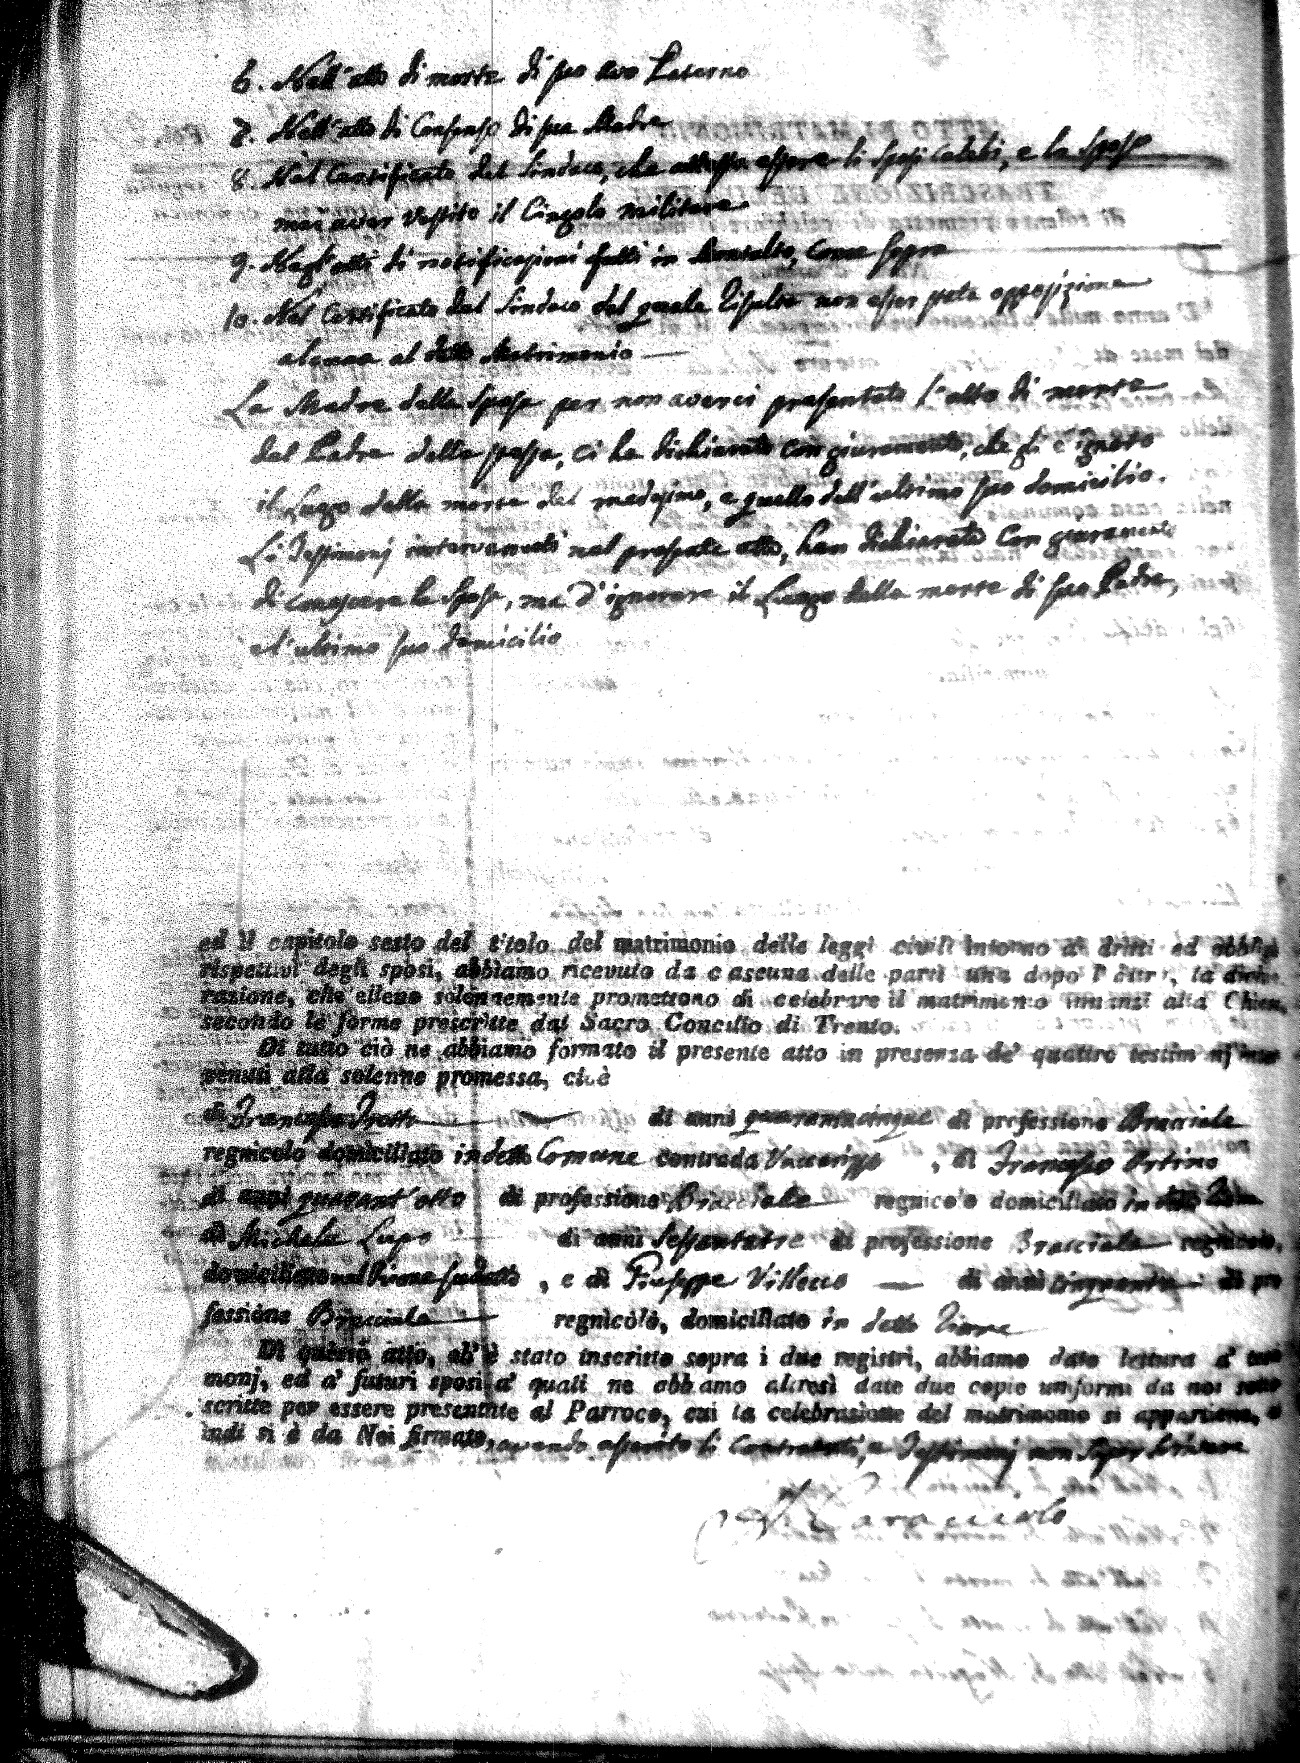 6. Nell'atto di morte di suo avo Paterno
7. Nell'atto di Consenso di sua Madre
8. Nel Certificato del Sindaco, che attesta essere li Sposi Celibi, e lo Sposo
mai aver vestito il Cingolo militare
9. Negl'atti di notificazioni fatti in, come sopra
10. Nel Certificato del Sindaco del quale risulta non esser stata opposizione
alcuna al detto Matrimonio
La Madre della Sposa per non averci presentato l'atto di morte
del Padre della sposa, ci ha dichiarato con giuramento, che gli è ignoto
il Luogo della morte del medesimo, e quello dell'ultimo suo domicilio.
Li Testimonj intervenuti nel presente atto, han dichiarato con giuramento
di conoscere la Sposa, ma d'ignorare il Luogo della morte di suo Padre,
e l'ultimo suo domicilio
ed il capitolo sesto del titolo del matrimonio delle leggi civili intorno a' dritti ed obblighi
rispettivi degli sposi, abbiamo ricevuto da ciascuna delle parti una dopo l'altra, la dichia
razione, che elleno solennemente promettono di celebrare il matrimonio innanzi alla Chiesa,
secondo le forme prescritte dal Sacro Concilio di Trento.
Di tutto ciò ne abbiamo formato il presente atto in presenza de' quattro testimonj inter
venuti alla solenne promessa, cioè
di Francesco di anni quarantacinque di professione Bracciale
regnicolo domiciliato in detto Comune contrada Vaccarizzo, di Francesco Artino
di anni quarant'otto di professione Bracciale regnicolo domiciliato in detto
di Michele Lupo di anni Sessantatre di professione Bracciale regnicolo,
domiciliato nel sudetto, e di Giuseppe Villecco di anni cinquanta di pro
fessione Bracciale regnicolo, domiciliato in detto
Di questo atto, ch'è stato inscritto sopra i due registri, abbiamo dato lettura a' testi
monj, ed a' futuri sposi a' quali ne abbiamo altresì date due copie uniformi da noi sotto
scritte per essere presentate al Parroco, cui la celebrazione del matrimonio si appartiene, e
indi si è da Noi firmato, avendo asserito li Contraenti, e Testimonj non saper scrivere
Caracciolo